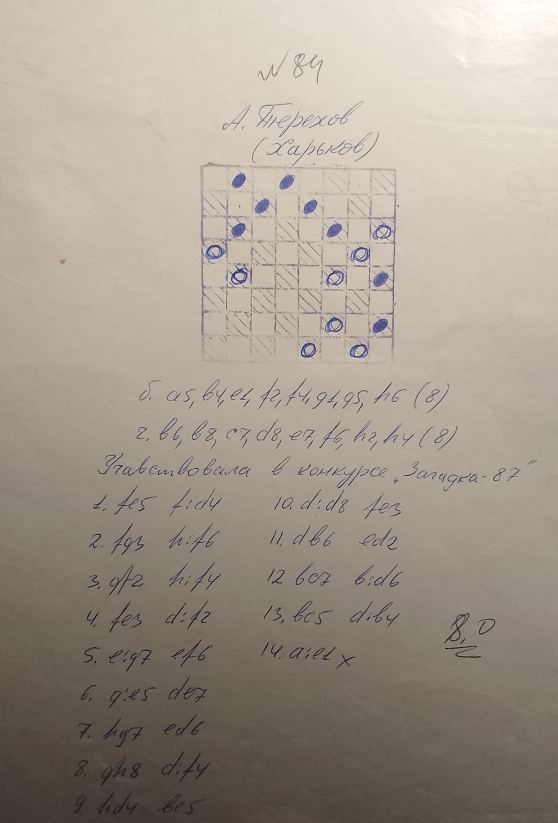 № 84
А. Терехов
(Харьков)
б. a5, b4, e1, f2, f4, g1, g5, h6 (8)
г. b6, b8, c7, d8, e7, f6, h2, h4 (8)
Учавствовала в конкурсе „Загадка-87"
1. fe5 f:d4 10. d:d8 fe3
2. fg3 h:f6 11. db6 ed2
3. gf2 h:f4 12 bc7 b:d6
4. fe3 d:f2 13. bc5 d:b4
5. e:g7 ef6 14. a:e1 x
8,0
6. g:e5 de7
7. hg7 ed6
8. gh8 d:f4
9. hd4 bc5